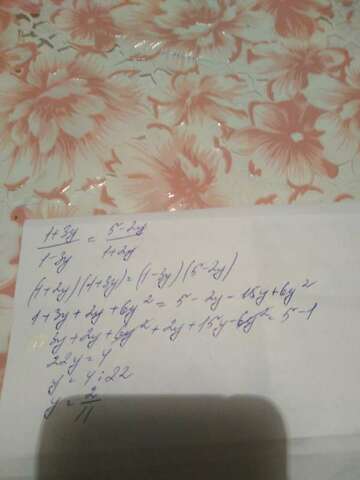 1+3y/1-3y = 5-2y/1+2y
(1+2y)(1+3y)=(1-3y)(5-2y)
1+3y+2y+6y² = 5-2y-15y+6y²
3y+2y+6y²+2y+15y-6y²=5-1
22y=4
y=4:22
y=2/11